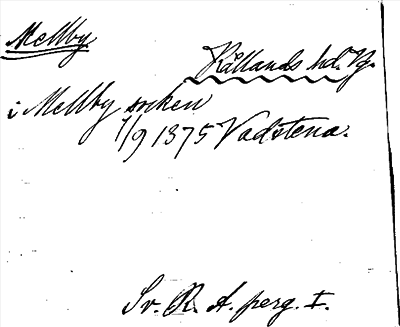 Mellby
Kållands hd. Vg.
i Mellby socken
1/9 1375 Vadstena.
Sv. R. A. perg. I.